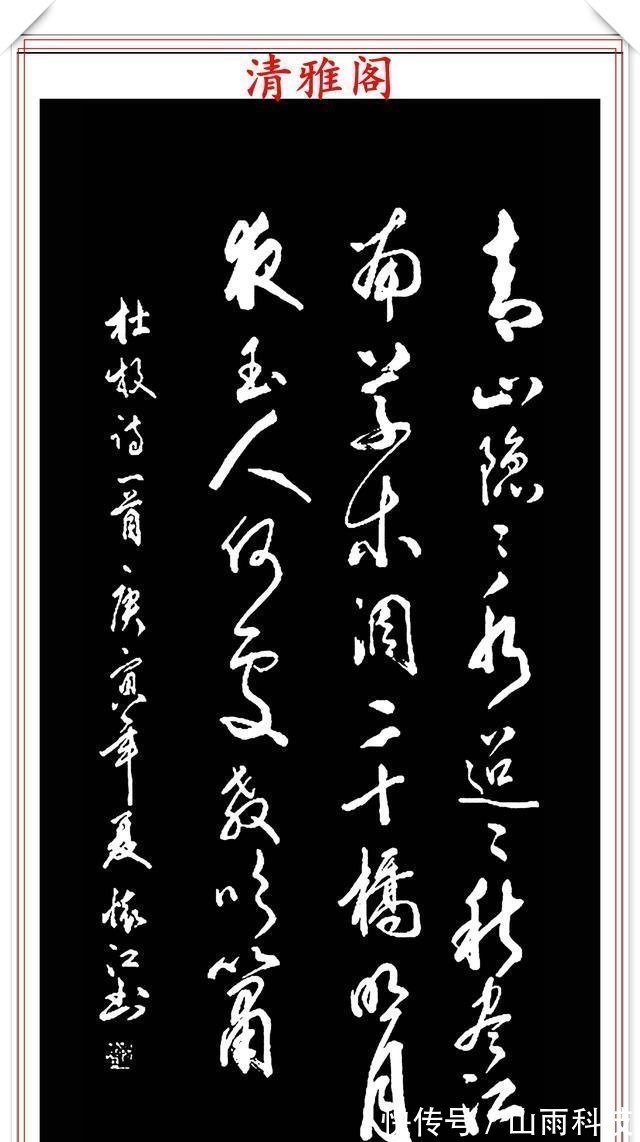 清雅阁
青山隐〻水迢〻秋尽江
南草未凋二十橋明月
夜玉人何處教吹簫
杜牧诗一首庚寅年夏懷江书
快传号/山雨科技